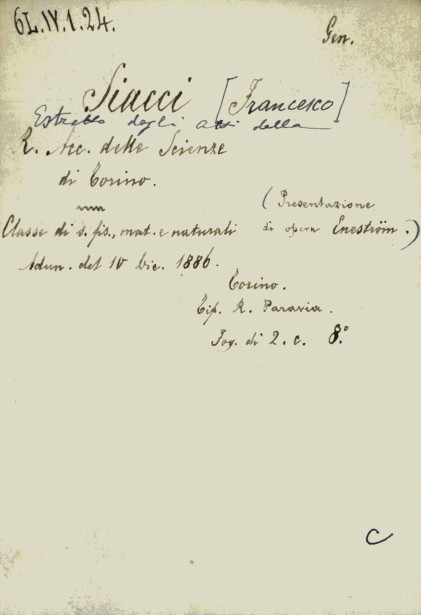 6L.IV.1.24.
Gen.
Siacci [Francesco]
Estratto degli atti della
R. Acc. delle Scienze
di Torino.
(Presentazione
Classe di s. fis., mat. e naturali di opera Eneström.)
Adun. del 10 Dic. 1886.
Torino.
Tip. R. Paravia.
Fog. di 2. c. 8.°
C